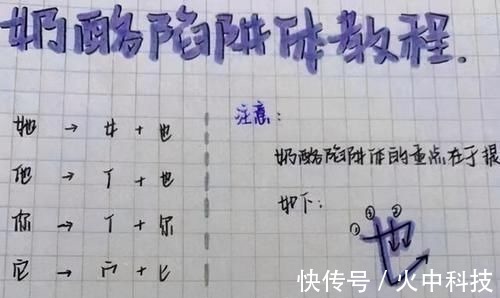 奶酪陷阱体教程.
她 → 女 + 也
他 → 亻 + 也
你 → 亻 + 尔
它 → 宀 + 匕
注意:
奶酪陷阱体的重点在于
如下:
① ③ ②
也
快传号 / 火中科技